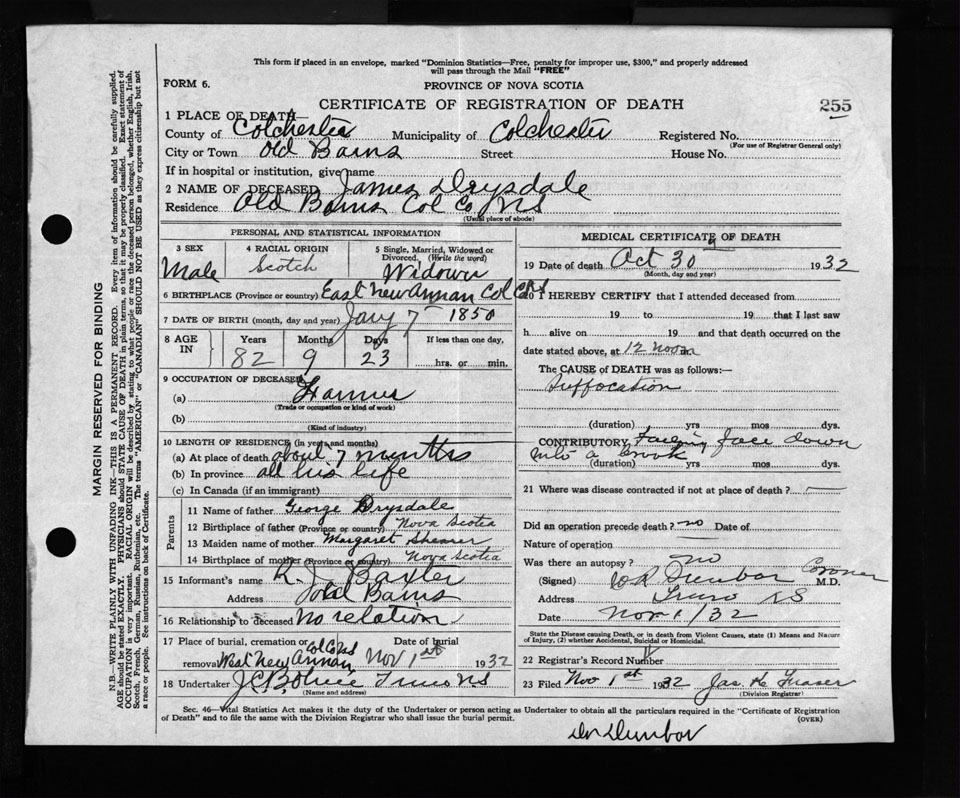 This form if placed in an envelope, marked "Dominion Statistics—Free, penalty for improper use, $300," and properly addressed
will pass through the Mail "FREE"
FORM 6.
PROVINCE OF NOVA SCOTIA
CERTIFICATE OF REGISTRATION OF DEATH
255
1 PLACE OF DEATH—
County of Colchester Municipality of Colchester Registered No.
(For use of Registrar General only)
City or Town Old Barns Street House No.
If in hospital or institution, give name
2 NAME OF DECEASED James Drysdale
Residence Old Barns Col Co NS
(Usual place of abode)
PERSONAL AND STATISTICAL INFORMATION
3 SEX 4 RACIAL ORIGIN 5 Single, Married, Widowed or
Divorced. (Write the word)
Male Scotch Widower
6 BIRTHPLACE (Province or country) East New Annan Col Co NS
7 DATE OF BIRTH (month, day and year) Jany 7 1850
8 AGE IN Years Months Days If less than one day,
82 9 23 hrs. or min.
9 OCCUPATION OF DECEASED
(a) Farmer
(Trade or occupation or kind of work)
(b)
(Kind of industry)
10 LENGTH OF RESIDENCE (in years and months)
(a) At place of death about 7 months
(b) In province all his life
(c) In Canada (if an immigrant)
Parents
11 Name of father George Drysdale
12 Birthplace of father (Province or country) Nova Scotia
13 Maiden name of mother Margaret Shearer
14 Birthplace of mother (Province or country) Nova Scotia
15 Informant's name R. J. Baxter
Address Old Barns
16 Relationship to deceased No relation
17 Place of burial, cremation or Col Co NS Date of burial
removal West New Annan Nov 1st 1932
18 Undertaker Truro NS
(Name and address)
MEDICAL CERTIFICATE OF DEATH
19 Date of death Oct 30 1932
(Month, day and year)
20 I HEREBY CERTIFY that I attended deceased from
19 to 19 that I last saw
h alive on 19 and that death occurred on the
date stated above, at 12 Noon m
The CAUSE OF DEATH was as follows:—
Suffocation
(duration) yrs mos dys.
CONTRIBUTORY Falling face down
into a brook
(duration) yrs mos dys.
21 Where was disease contracted if not at place of death?
Did an operation precede death? no Date of
Nature of operation
Was there an autopsy? no
(Signed) Dunbar Coroner M.D.
Address Truro NS
Date Nov 1/32
State the Disease causing Death, or in death from Violent Causes, state (1) Means and Nature
of Injury, (2) whether Accidental, Suicidal or Homicidal.
22 Registrar's Record Number
23 Filed Nov 1st 1932 Jas. K. Fraser
(Division Registrar)
Sec. 46—Vital Statistics Act makes it the duty of the Undertaker or person acting as Undertaker to obtain all the particulars required in the "Certificate of Registration
of Death" and to file the same with the Division Registrar who shall issue the burial permit.
(OVER)
Dr Dunbar
MARGIN RESERVED FOR BINDING
N.B.—WRITE PLAINLY WITH UNFADING INK—THIS IS A PERMANENT RECORD. Every item of information should be carefully supplied.
AGE should be stated EXACTLY. PHYSICIANS should STATE CAUSE OF DEATH in plain terms, so that it may be properly classified. Exact statement of
OCCUPATION is very important. RACIAL ORIGIN will be described by stating to what people or race the deceased person belonged, whether English, Irish,
Scotch, French, German, Russian, Ruthenian, etc. The terms "AMERICAN" or "CANADIAN" SHOULD NOT BE USED as they express citizenship but not
a race or people. See instructions on back of Certificate.